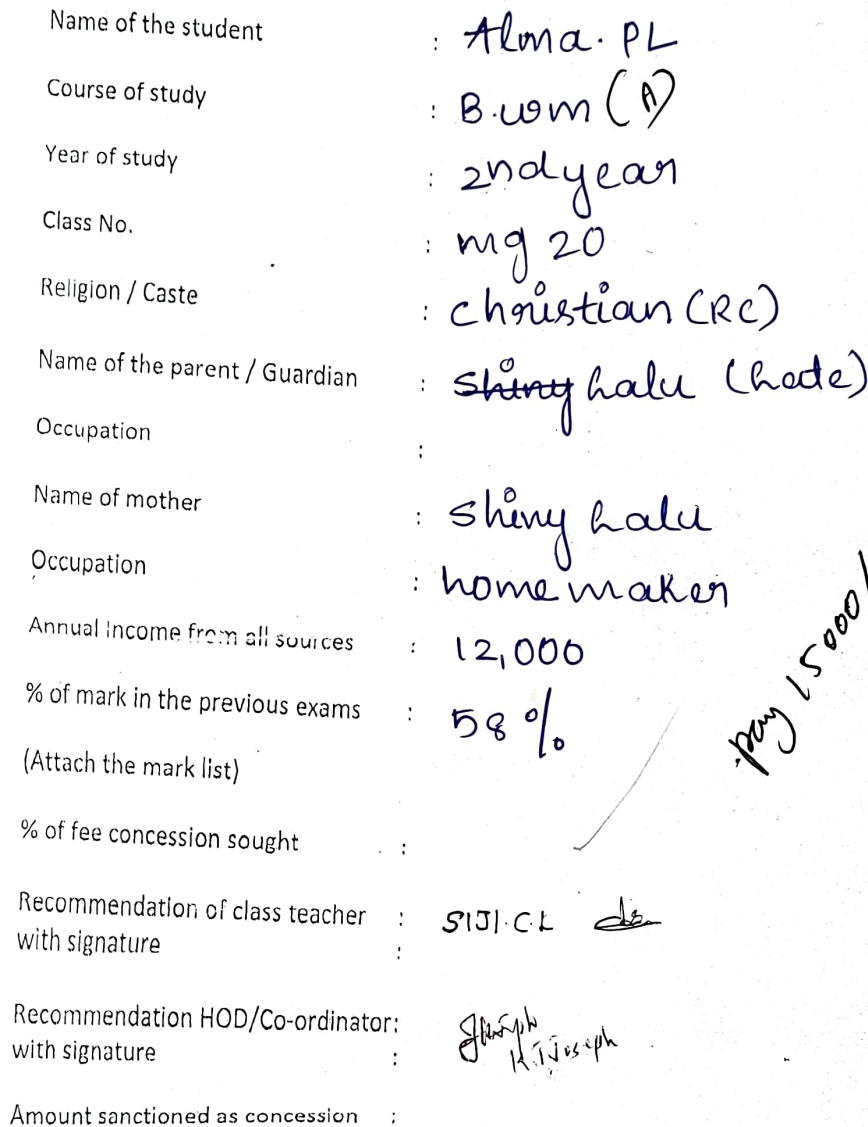 Name of the student : Alma. PL
Course of study : B.com (A)
Year of study : 2nd year
Class No. : mg 20
Religion / Caste : Christian (RC)
Name of the parent / Guardian : Shiny Lalu (Late)
Occupation :
Name of mother : Shiny Lalu
Occupation : home maker
Annual Income from all sources : 12,000
% of mark in the previous exams : 58 %
(Attach the mark list)
pay 15000/
% of fee concession sought :
Recommendation of class teacher : SIJI.C.L
with signature :
Recommendation HOD/Co-ordinator:
with signature : K.J Joseph
Amount sanctioned as concession :